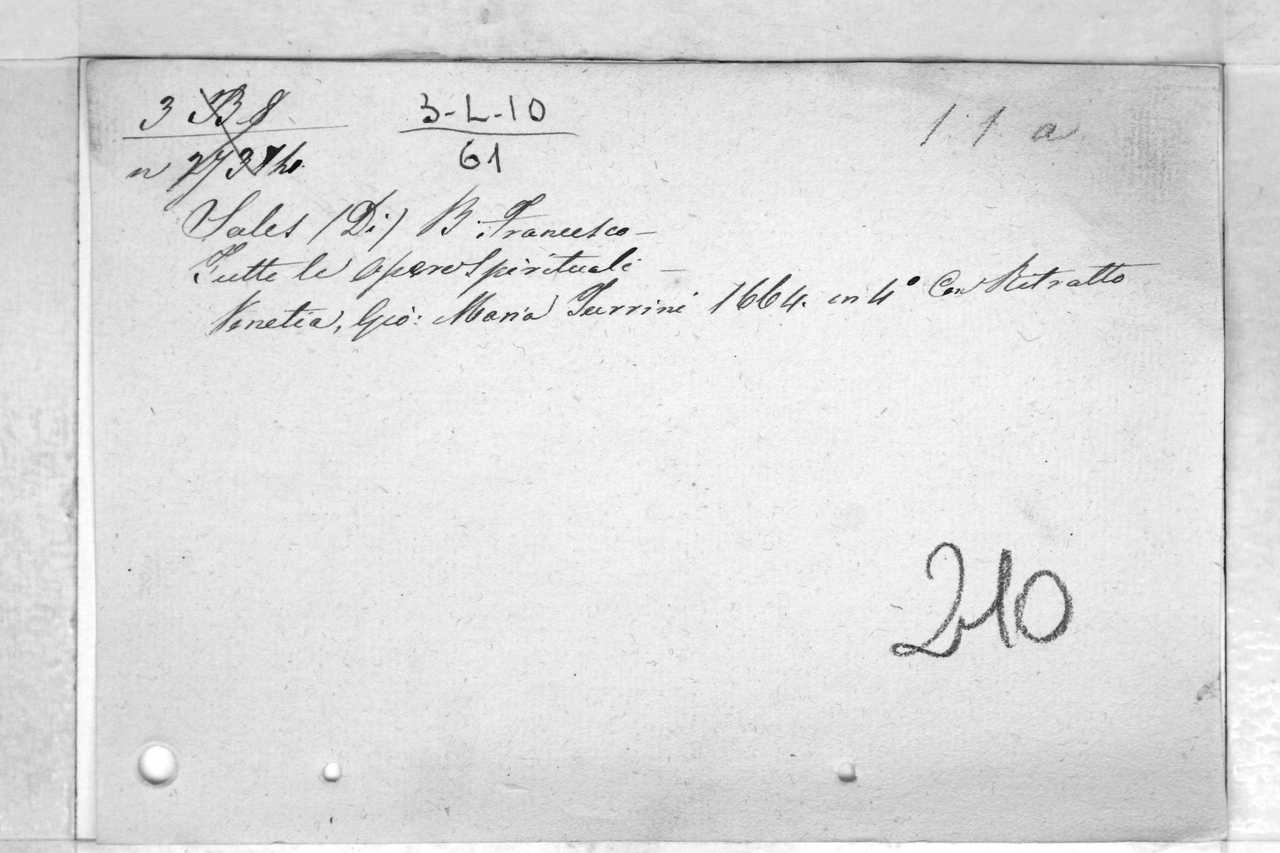 3 B 8
3-L-10
61
1 1 a
Sales (Di) B. Francesco —
Tutte le opere Spirituali —
Venetia, Gio: Maria Turrini 1664. in 4° Con Ritratto
210